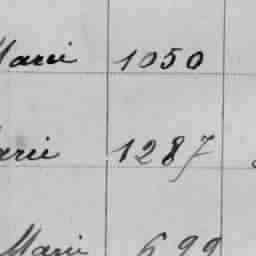 Marie 1050
Marie 1287
Marie 699